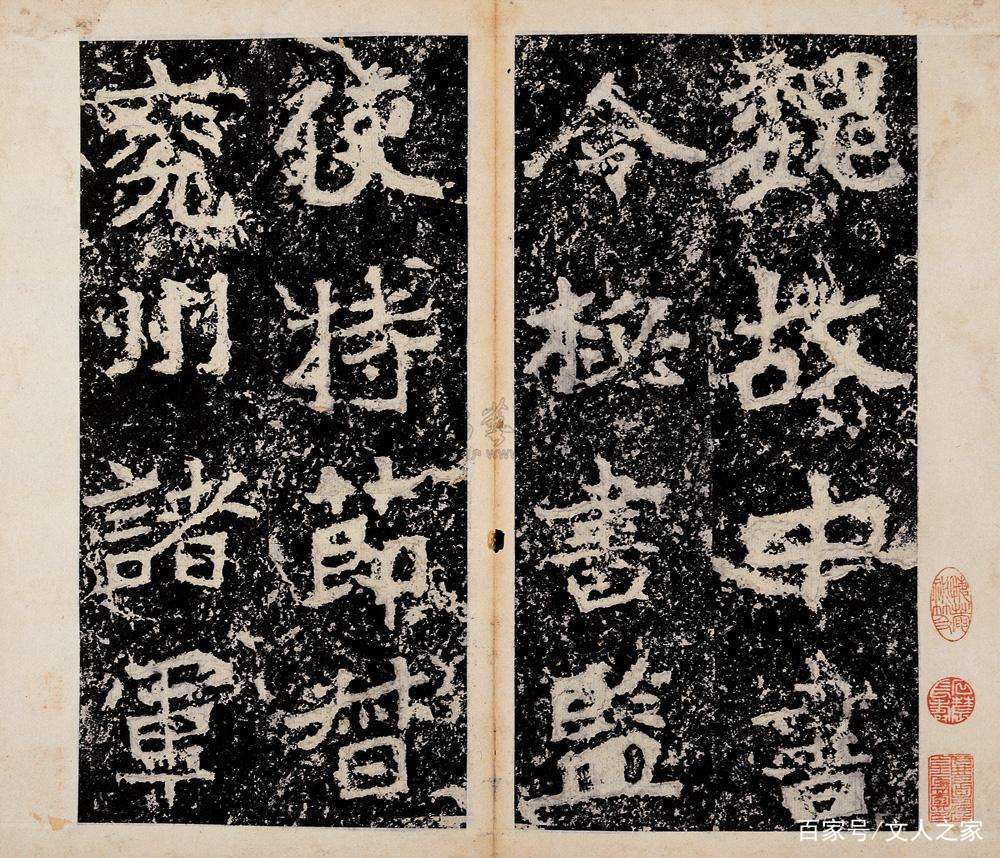 魏故中書
令秘書監
使持節督
兖州諸軍
百家号/文人之家